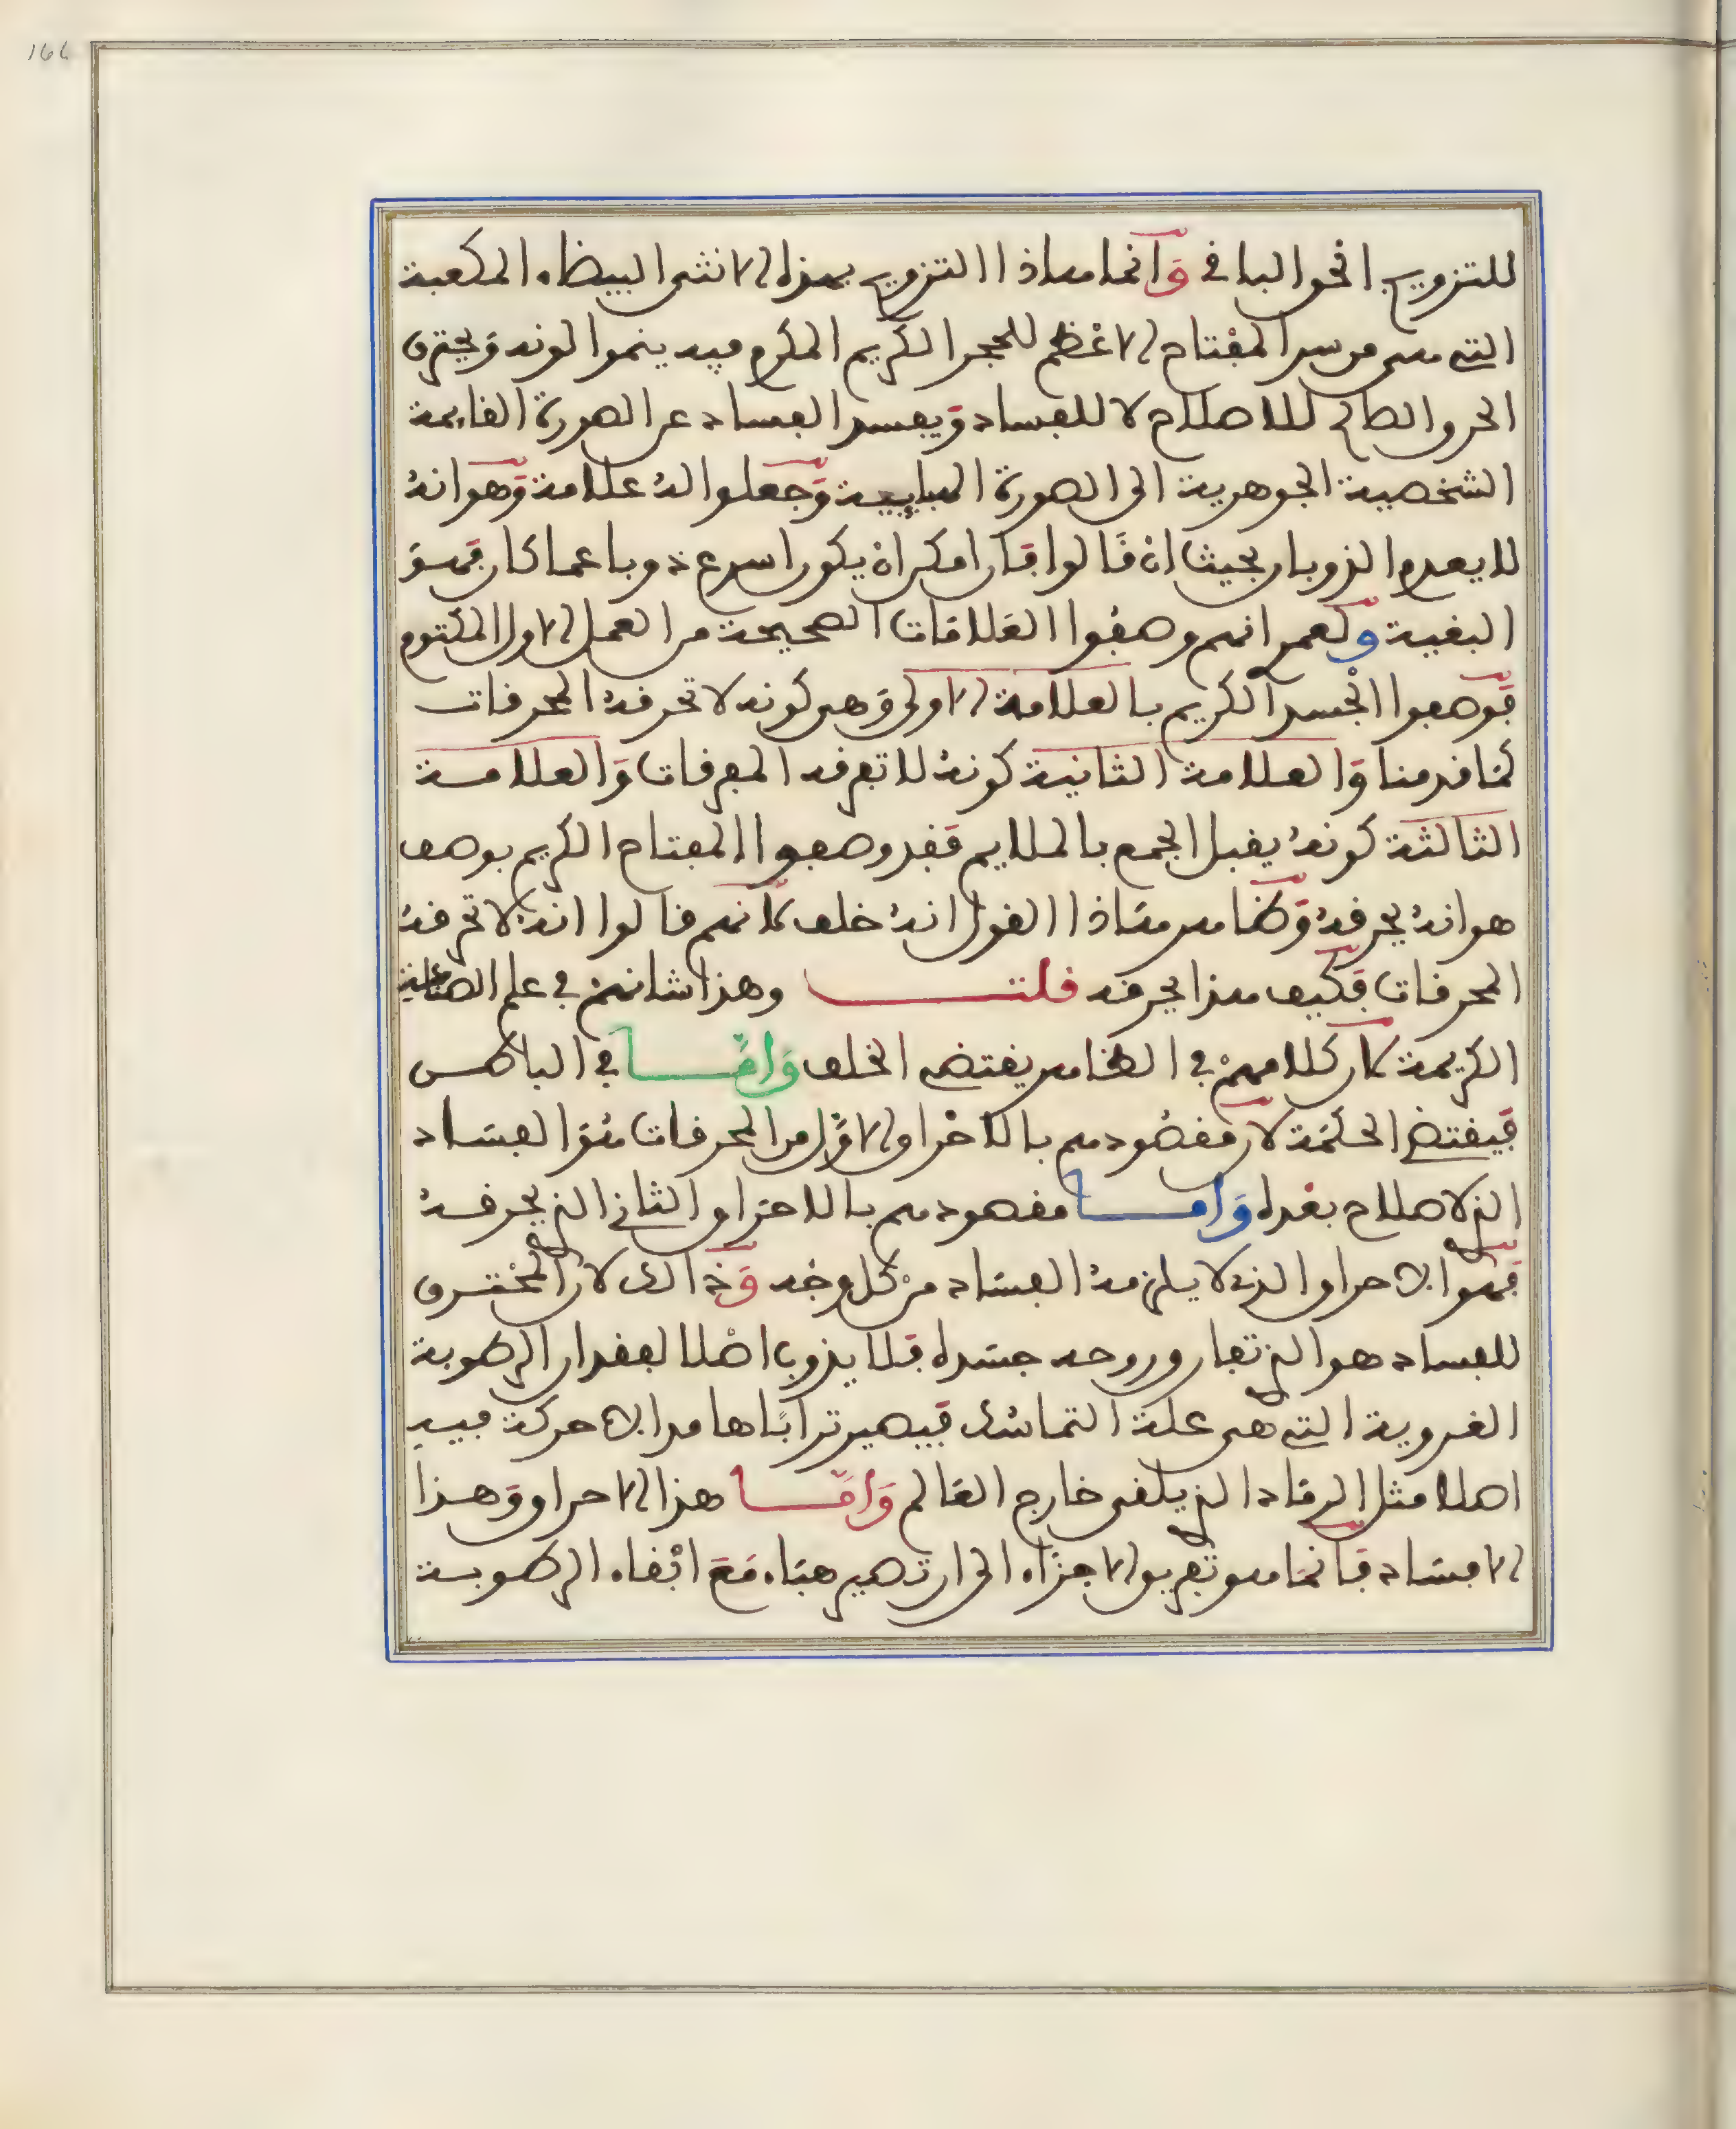 166
للتزويج الحق الباقي وانما هاذا التزويج بهذه الانثى البيضاء المكعبة
التي هي من سر المفتاح الاعظم للحجر الكريم المكرم فيه ينموا لونه ويحترق
الحرق الصالح للاصلاح لا للفساد ويفسد الفساد عن الصورة القايمة
الشخصية الجوهرية الى الصورة وجعلوا له علامة وهو انه
لا يعدم الذوبان بحيث ان قالوا فان امكن ان يكون اسرع ذوبا عما كان فهو
البغية ولعمر انهم وصفوا العلامات الصحيحة من العمل الاول المكتوم
فوصفوا الجسد الكريم بالعلامة الاولى وهي كونه لا تحرقه المحرقات
كما قدمنا والعلامة الثانية كونه لا تعرفه المعرفات والعلامة
الثالثة كونه يقبل الجمع بالملايم فقد وصفوا المفتاح الكريم بوصف
هو انه يحرقه وظاهر هاذا القول انه خلف لانهم قالوا انه لا تحرقه
المحرقات فكيف هذا يحرقه قلت وهذا شانهم في علم الصناعة
الكريمة كان كلامهم في الظاهر يقتضي الخلف واما في الباطن
فيقتضي الحكمة لان مقصودهم بالاحراق الاول من المحرقات هو الفساد
الذي لا صلاح بعده واما مقصودهم بالاحراق الثاني الذي يحرقه
فهو الاحراق الذي لا يلزمه الفساد من كل وجه وذالك لان المحترق
للفساد هو الذي تفارق روحه جسده فلا يذوب اصلا لفقدان الرطوبة
الغروية التي هي علة التماسك فيصير ترابا هامدا لا حركة فيه
اصلا مثل الرماد الذي يلقى خارج العالم واما هذا الاحراق وهذا
الافساد فانما هو تفريق الاجزاء الى ان تصير هباء مع ابقاء الرطوبة